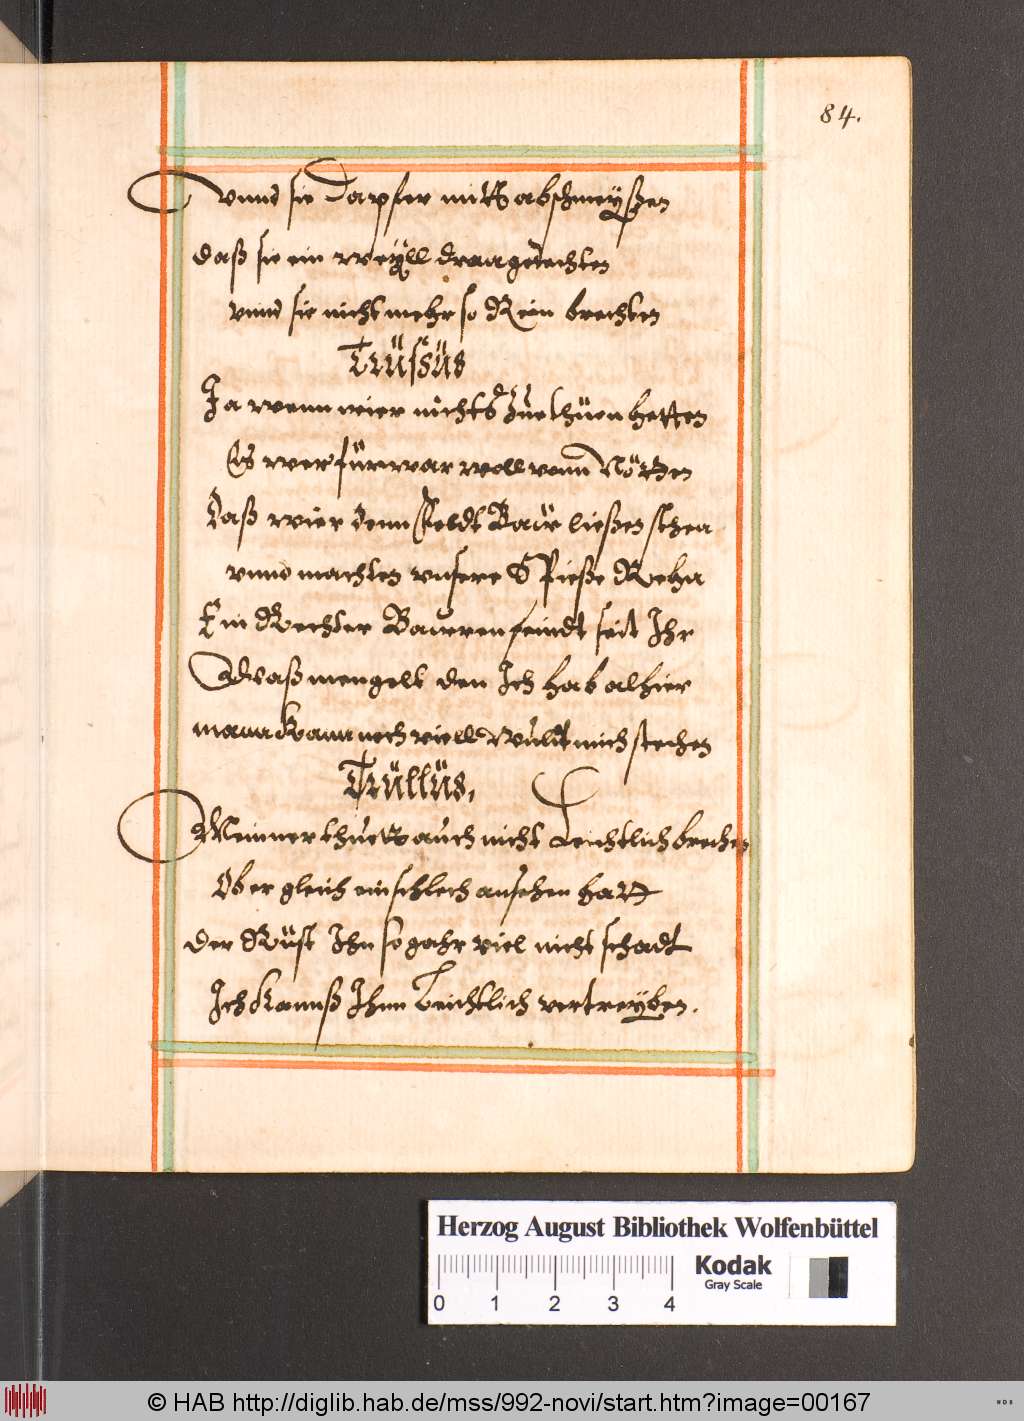 84.
Vnnd sie Dapfer mitt abschmeyßen
daß sie ein weyll dran gedechten
vnnd sie nicht mehr so Rein brechten
Trüsüs
Ja wenn wier nichts Zue thüen hetten
Es wer fürwar woll vonn Nötten
Daß wier denn Feldt Baür ließen stehn
vnnd machten vnsere Spieße
Ein Rechter Baurenfeindt seit Ihr
Waß mengelt den Ich hab alhier
mann kann noch viell mich stechen
Trüllüs,
Meinner thuett auch nicht Leichtlich brechen
Ob er gleich ein schlech ansehen hatt
der Rüst Ihn so gahr viel nicht schadt
Ich Kannß Ihm Leichtlich vertreyben.
Herzog August Bibliothek Wolfenbüttel
Kodak
Gray Scale
0 1 2 3 4
© HAB http://diglib.hab.de/mss/992-novi/start.htm?image=00167